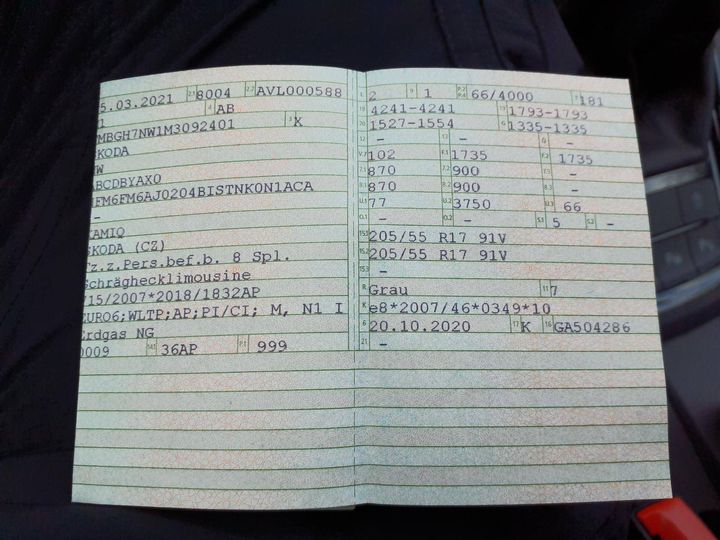 5.03.2021 2.1 8004 2.2 AVL000588
1 4 AB
MBGH7NW1M3092401 3 X
KODA
NW
ABCDBYAX0
FM6FM6AJ0204BISTNK0N1ACA
-
KAMIQ
SKODA (CZ)
Fz.z.Pers.bef.b. 8 Spl.
Schräghecklimousine
715/2007*2018/1832AP
EURO6;WLTP;AP;PI/CI; M, N1 I
Erdgas NG
0009 14.1 36AP P.1 999
L 2 9 1 P.2 P.4 66/4000 T 181
18 4241-4241 19 1793-1793
20 1527-1554 G 1335-1335
12 - 13 - Q -
V.7 102 F.1 1735 F.2 1735
7.1 870 7.2 900 7.3 -
8.1 870 8.2 900 8.3 -
U.1 77 U.2 3750 U.3 66
O.1 - O.2 - S.1 5 S.2 -
15.1 205/55 R17 91V
15.2 205/55 R17 91V
15.3 -
R Grau 11 7
K e8*2007/46*0349*10
6 20.10.2020 17 K 16 GA504286
21 -